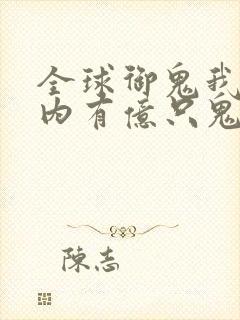 全球御鬼我
内有億只鬼
陳志